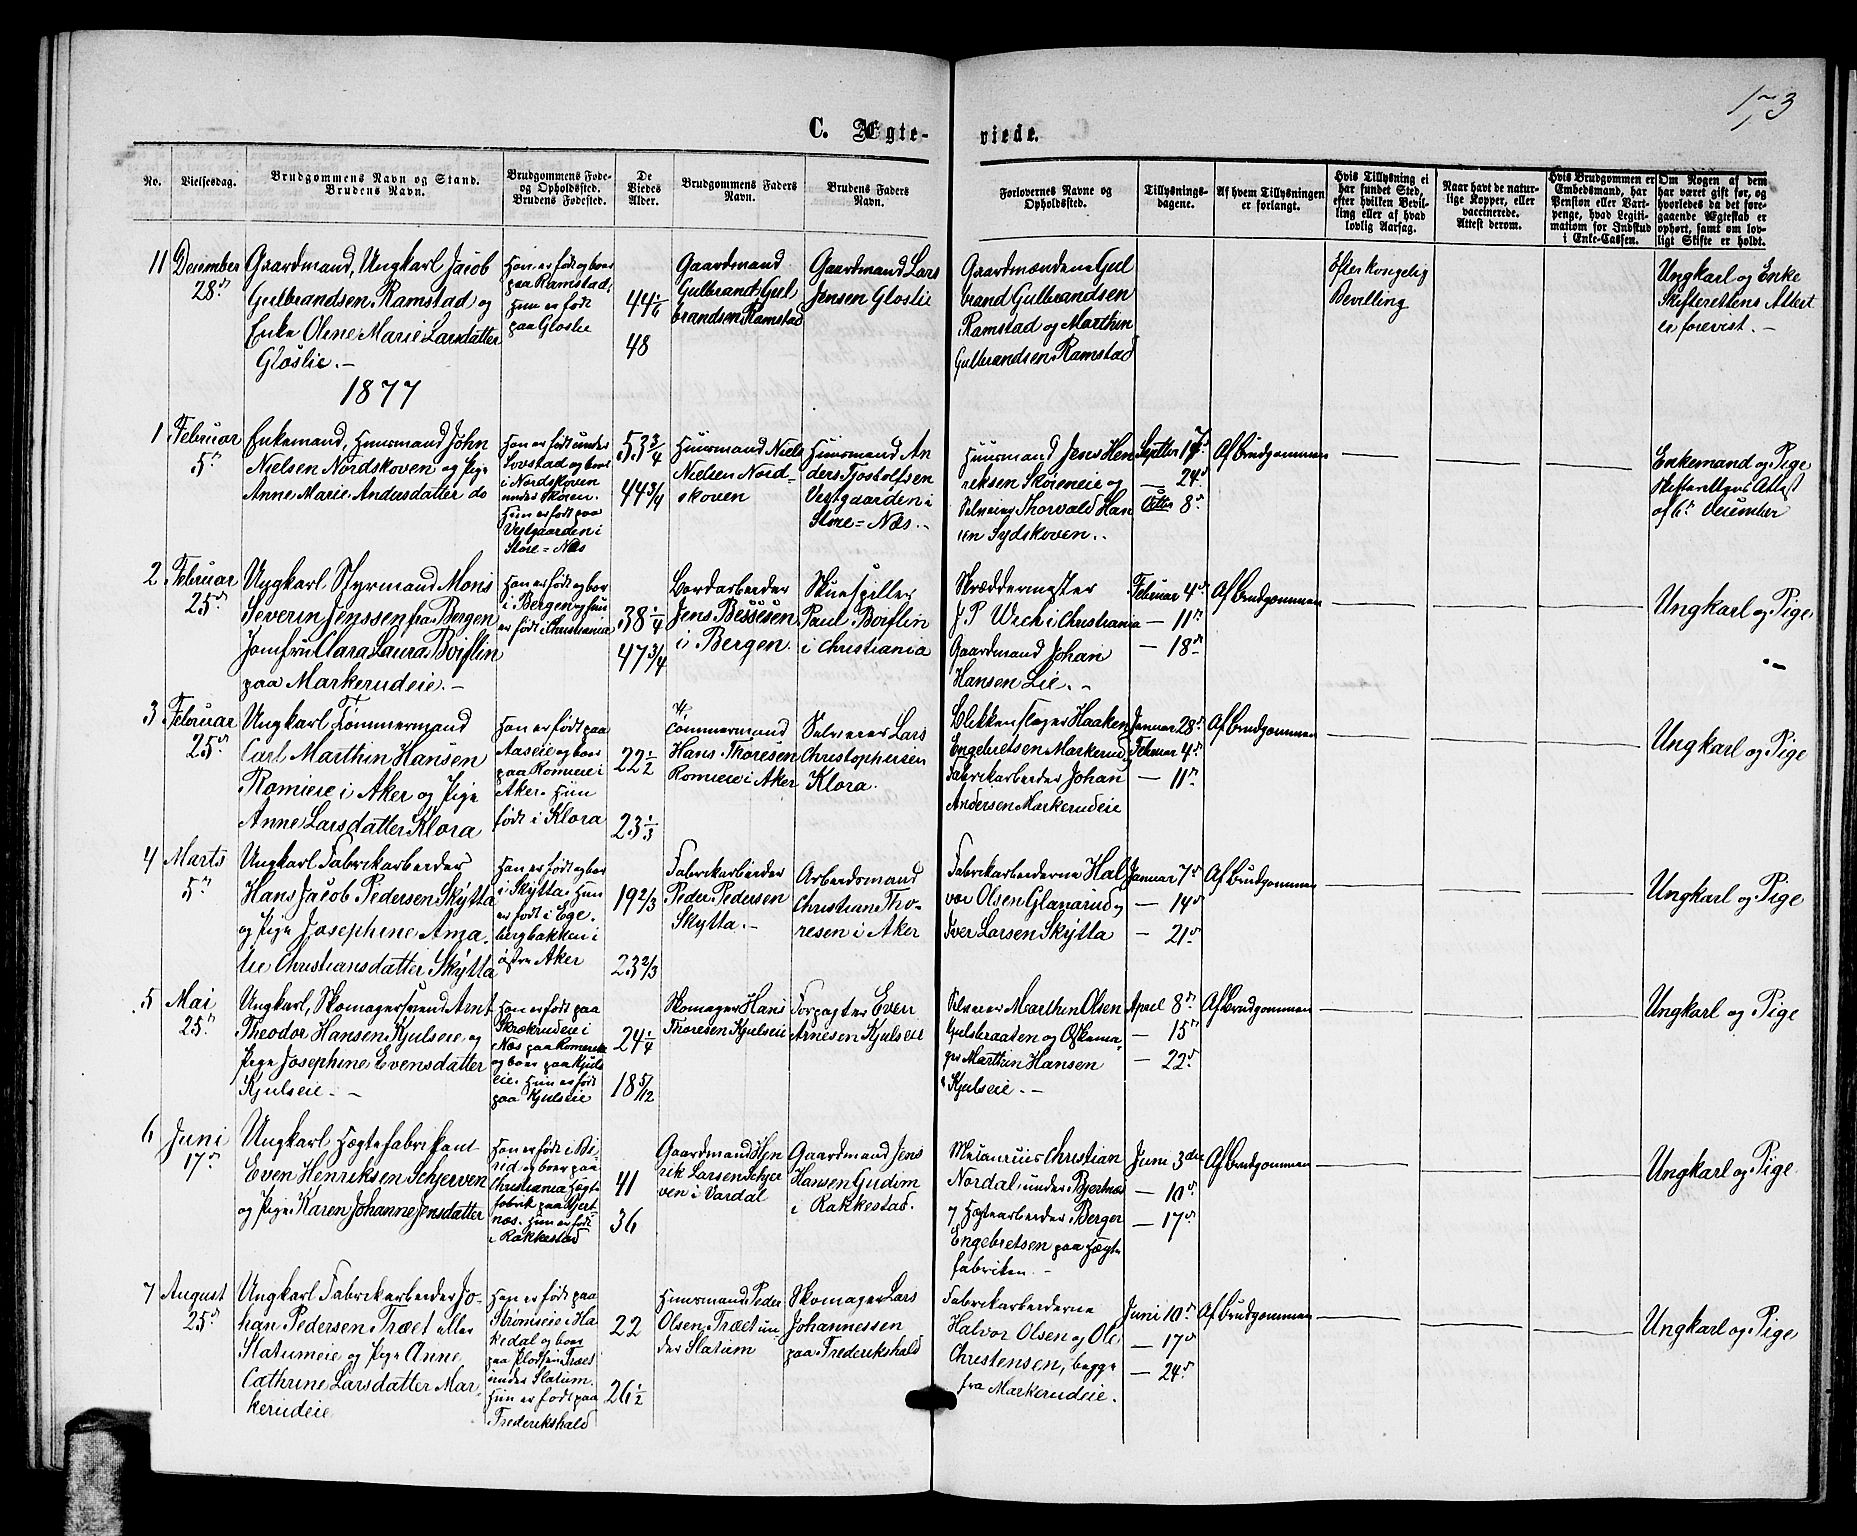 173
C. Ægte-
viede.
No.
Vielsesdag.
Brudgommens Navn og Stand.
Brudens Navn.
Brudgommens Føde-
og Opholdssted.
Brudens Fødested.
De
Viedes
Alder.
Brudgommens Faders
Navn.
Brudens Faders
Navn.
Forlovernes Navne og
Opholdssted.
Tillysnings-
dagene.
Af hvem Tillysningen
er forlangt.
Hvis Tillysning ei
har fundet Sted,
efter hvilken Bevil-
ling eller af hvad
lovlig Aarsag.
Naar havt de natur-
lige Kopper, eller
vaccinerede.
Attest derom.
Hvis Brudgommen er
Embedsmand, har
Pension eller Vart-
penge, hvad Legiti-
mation for Indskud
i Enke-Cassen.
Om Nogen af dem
har været gift før, og
hvorledes da det fore-
gaaende Ægteskab er
ophørt, samt om lov-
ligt Skifte er holdt.
11
December
28de
Gaardmand, Ungkarl Jacob
Gulbrandsen Ramstad og
Enke Olene Marie Larsdatter
Gloslie. —
Han er født og boer
paa Ramstad,
Hun er født
paa Gloslie
44 1/6
48
Gaardmand
Gulbrand Gul
brandsen Ramstad
Gaardmand Lars
Jensen Gloslie
Gaardmændene Gul
brand Gulbrandsen
Ramstad og Marthin
Gulbrandsen Ramstad
Efter kongelig
Bevilling
Ungkarl og Enke
Skifterettens Attest
er forevist. —
1877
1
Februar
5te
Enkemand, Huusmand John
Nielsen Nordskoven og Pige
Anne Marie Andersdatter do
Han er født under
Lovstad og boer
i Nordskoven
under Skoren.
Hun er født paa
Vestgaarden i
Store=Næs
53 3/4
44 3/4
Huusmand Niels
Nielsen Nord=
skoven
Huusmand An
ders Tjostolfsen
Vestgaarden i
Store=Næs. —
Huusmand Jens Hen
riksen Skoreneie og
Selveier Thorvald Han
sen Sydskoven. .
Septbr 17de
— 24de
Octbr 8de
Af Brudgommen
Enkemand og Pige
Skifterettens Attest
af 6te December
2
Februar
25de
Ungkarl Styrmand Mons
Severin Jenssen fra Bergen
Jomfru Clara Laura Boiflin
paa Markerudeie. —
Han er født og boer
i Bergen og hun
er født i Christiania
38 1/4
47 3/4
Bordarbeider
Jens Bessesen
i Bergen
Skuespiller
Paul Boiflin
i Christiania
Skræddermester
J. P. Wich i Christiania
Gaardmand Johan
Hansen Lie. —
Februar 4de
— 11te
— 18de
Af Brudgommen
Ungkarl og Pige
. —
3
Februar
25de
Ungkarl Tømmermand
Carl Marthin Hansen
Romieie i Aker og Pige
Anne Larsdatter Klora
Han er født paa
Aaseie og boer
paa Romieie i
Aker. Hun
født i Klora
22 1/2
23 1/3
Tømmermand
Hans Thoresen
Romieie i Aker
Selveier Lars
Christophersen
Klora.
Blikkenslager Haaken
Engebretsen Markerud,
Fabrikarbeider Johan
Andersen Markerudeie
Januar 28de
Februar 4de
— 11te
Af Brudgommen
Ungkarl og Pige
4
Marts
5te
Ungkarl Fabrikarbeider
Hans Jacob Pedersen Skytta
og Pige Josephine Ama.
lie Christiansdatter Skytta
Han er født og boer
i Skytta. Hun
er født i Ege.
bergbakken i
østre Aker
19 2/3
23 2/3
Fabrikarbeider
Peder Pedersen
Skytta. —
Arbeidsmand
Christian Tho-
resen i Aker
Fabrikarbeiderne Hal
vor Olsen Glanarud og
Iver Larsen Skytta
Januar 7de
— 14de
— 21de
Af Brudgommen
Ungkarl og Pige
5
Mai
25de
Ungkarl, Skomagersvend Arnt
Theodor Hansen Kjulseie og
Pige Josephine Evensdatter
Kjulseie. —
Han er født paa
Skrukrudeie i
Næs paa Romerike
og boer paa Kjuls
eie. Hun er født
paa Kjulseie
24 1/4
18 5/12
Skomager Hans
Thoresen Kjulseie
Forpagter Even
Arnesen Kjulseie
Selveier Marthin Olsen
Gulsbraaten og Skoma-
ger Marthin Hansen
Kjulseie. —
April 8de
— 15de
— 22de
Af Brudgommen
Ungkarl og Pige
6
Juni
17de
Ungkarl Hægtefabrikant
Even Henriksen Schjerven
og Pige Karen Johanne Jensdatter
Han er født i Bi-
rid og boer paa
Christiania Hægte
fabrik paa Bjert
næs. Hun er født
i Rakkestad
41
36
Gaardmand Hen
rik Larsen Schjer
ven i Vardal
Gaardmand Jens
Hansen Gudim
i Rakkestad.
Christian
Nordal under Bjertnæs
og Hægtearbeider Berger
Engebretsen paa Hægte
fabriken. —
Juni 3die
— 10de
— 17de
Af Brudgommen
Ungkarl og Pige
7
August
25de
Ungkarl Fabrikarbeider Jo-
han Pedersen Træet eller
Slatumeie og Pige Anne
Cathrine Larsdatter Mar-
kerudeie
Han er født paa
Strømseie i Ha
kedal og boer
paa Pladsen Træet
under Slatum.
Hun er født paa
Frederikshald
22
26 1/2
Huusmand Peder
Olsen Træet un
der Slatum
Skomager Lars
Johannessen
paa Frederikshald
Fabrikarbeiderne
Halvor Olsen og Ole
Christensen, begge
fra Markerudeie.
Juni 10de
— 17de
— 24de
Af Brudgommen
Ungkarl og Pige